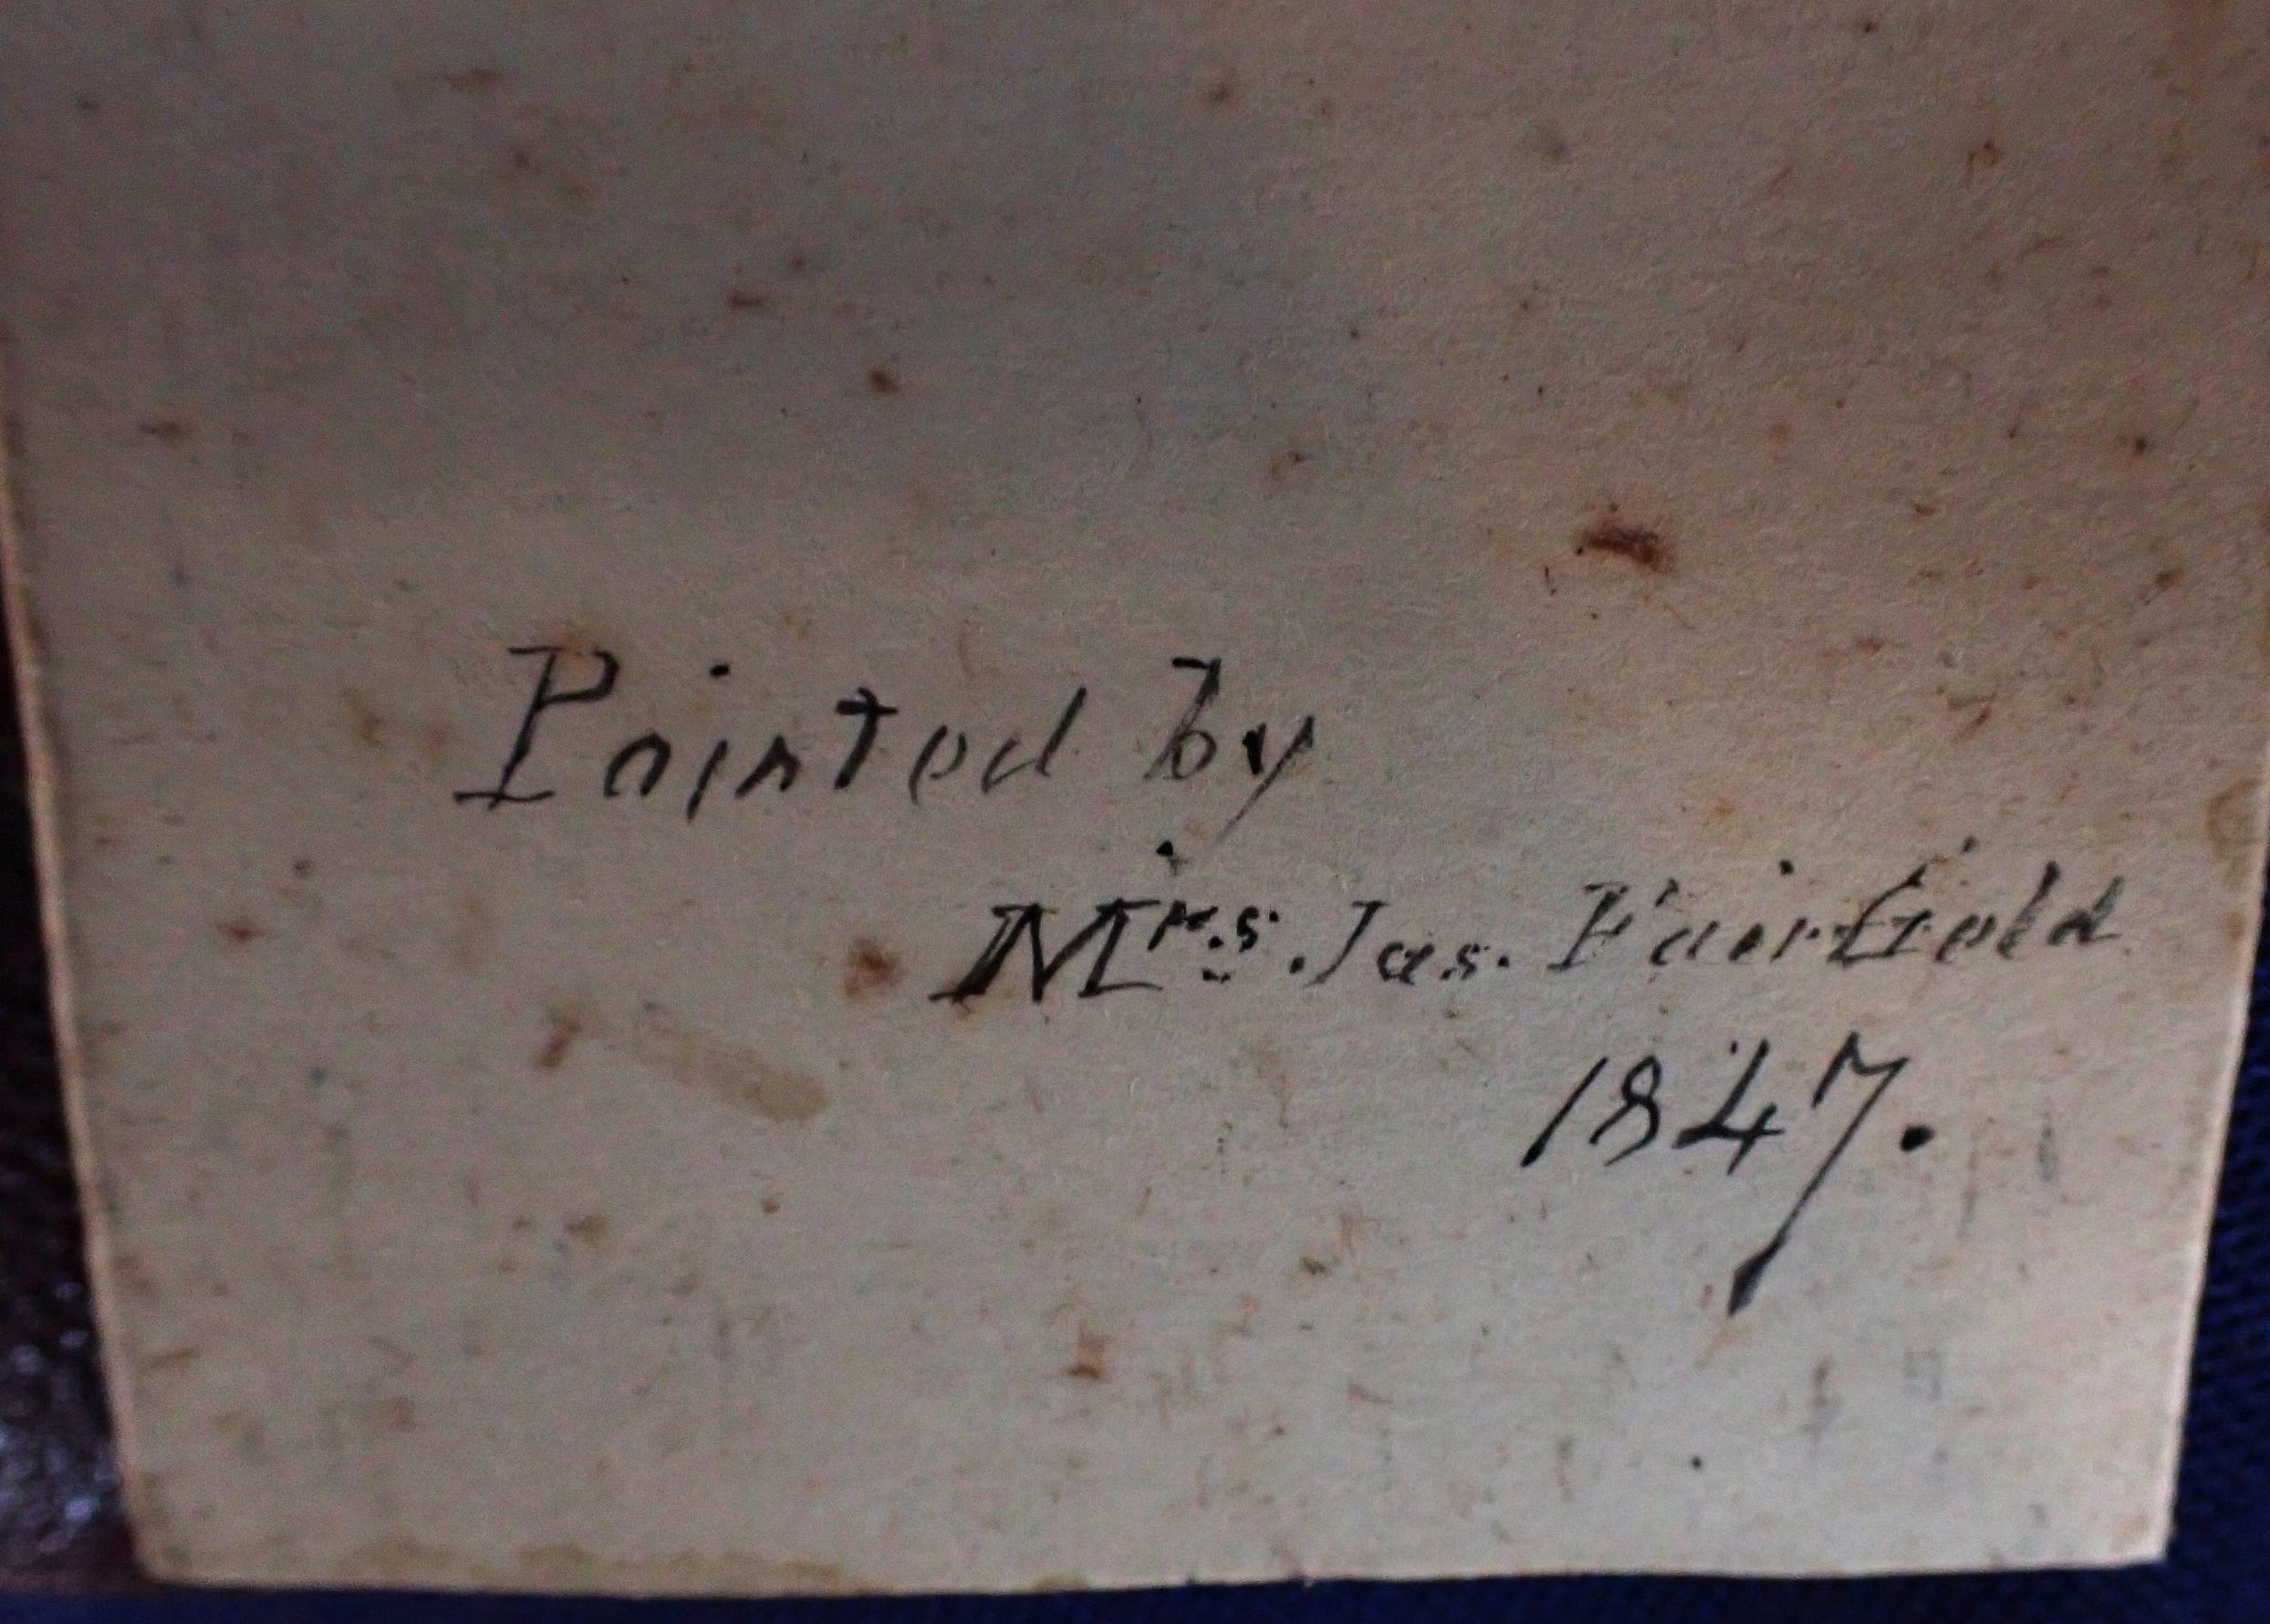 Painted by
Mrs. Jas. Fairfield
1847.